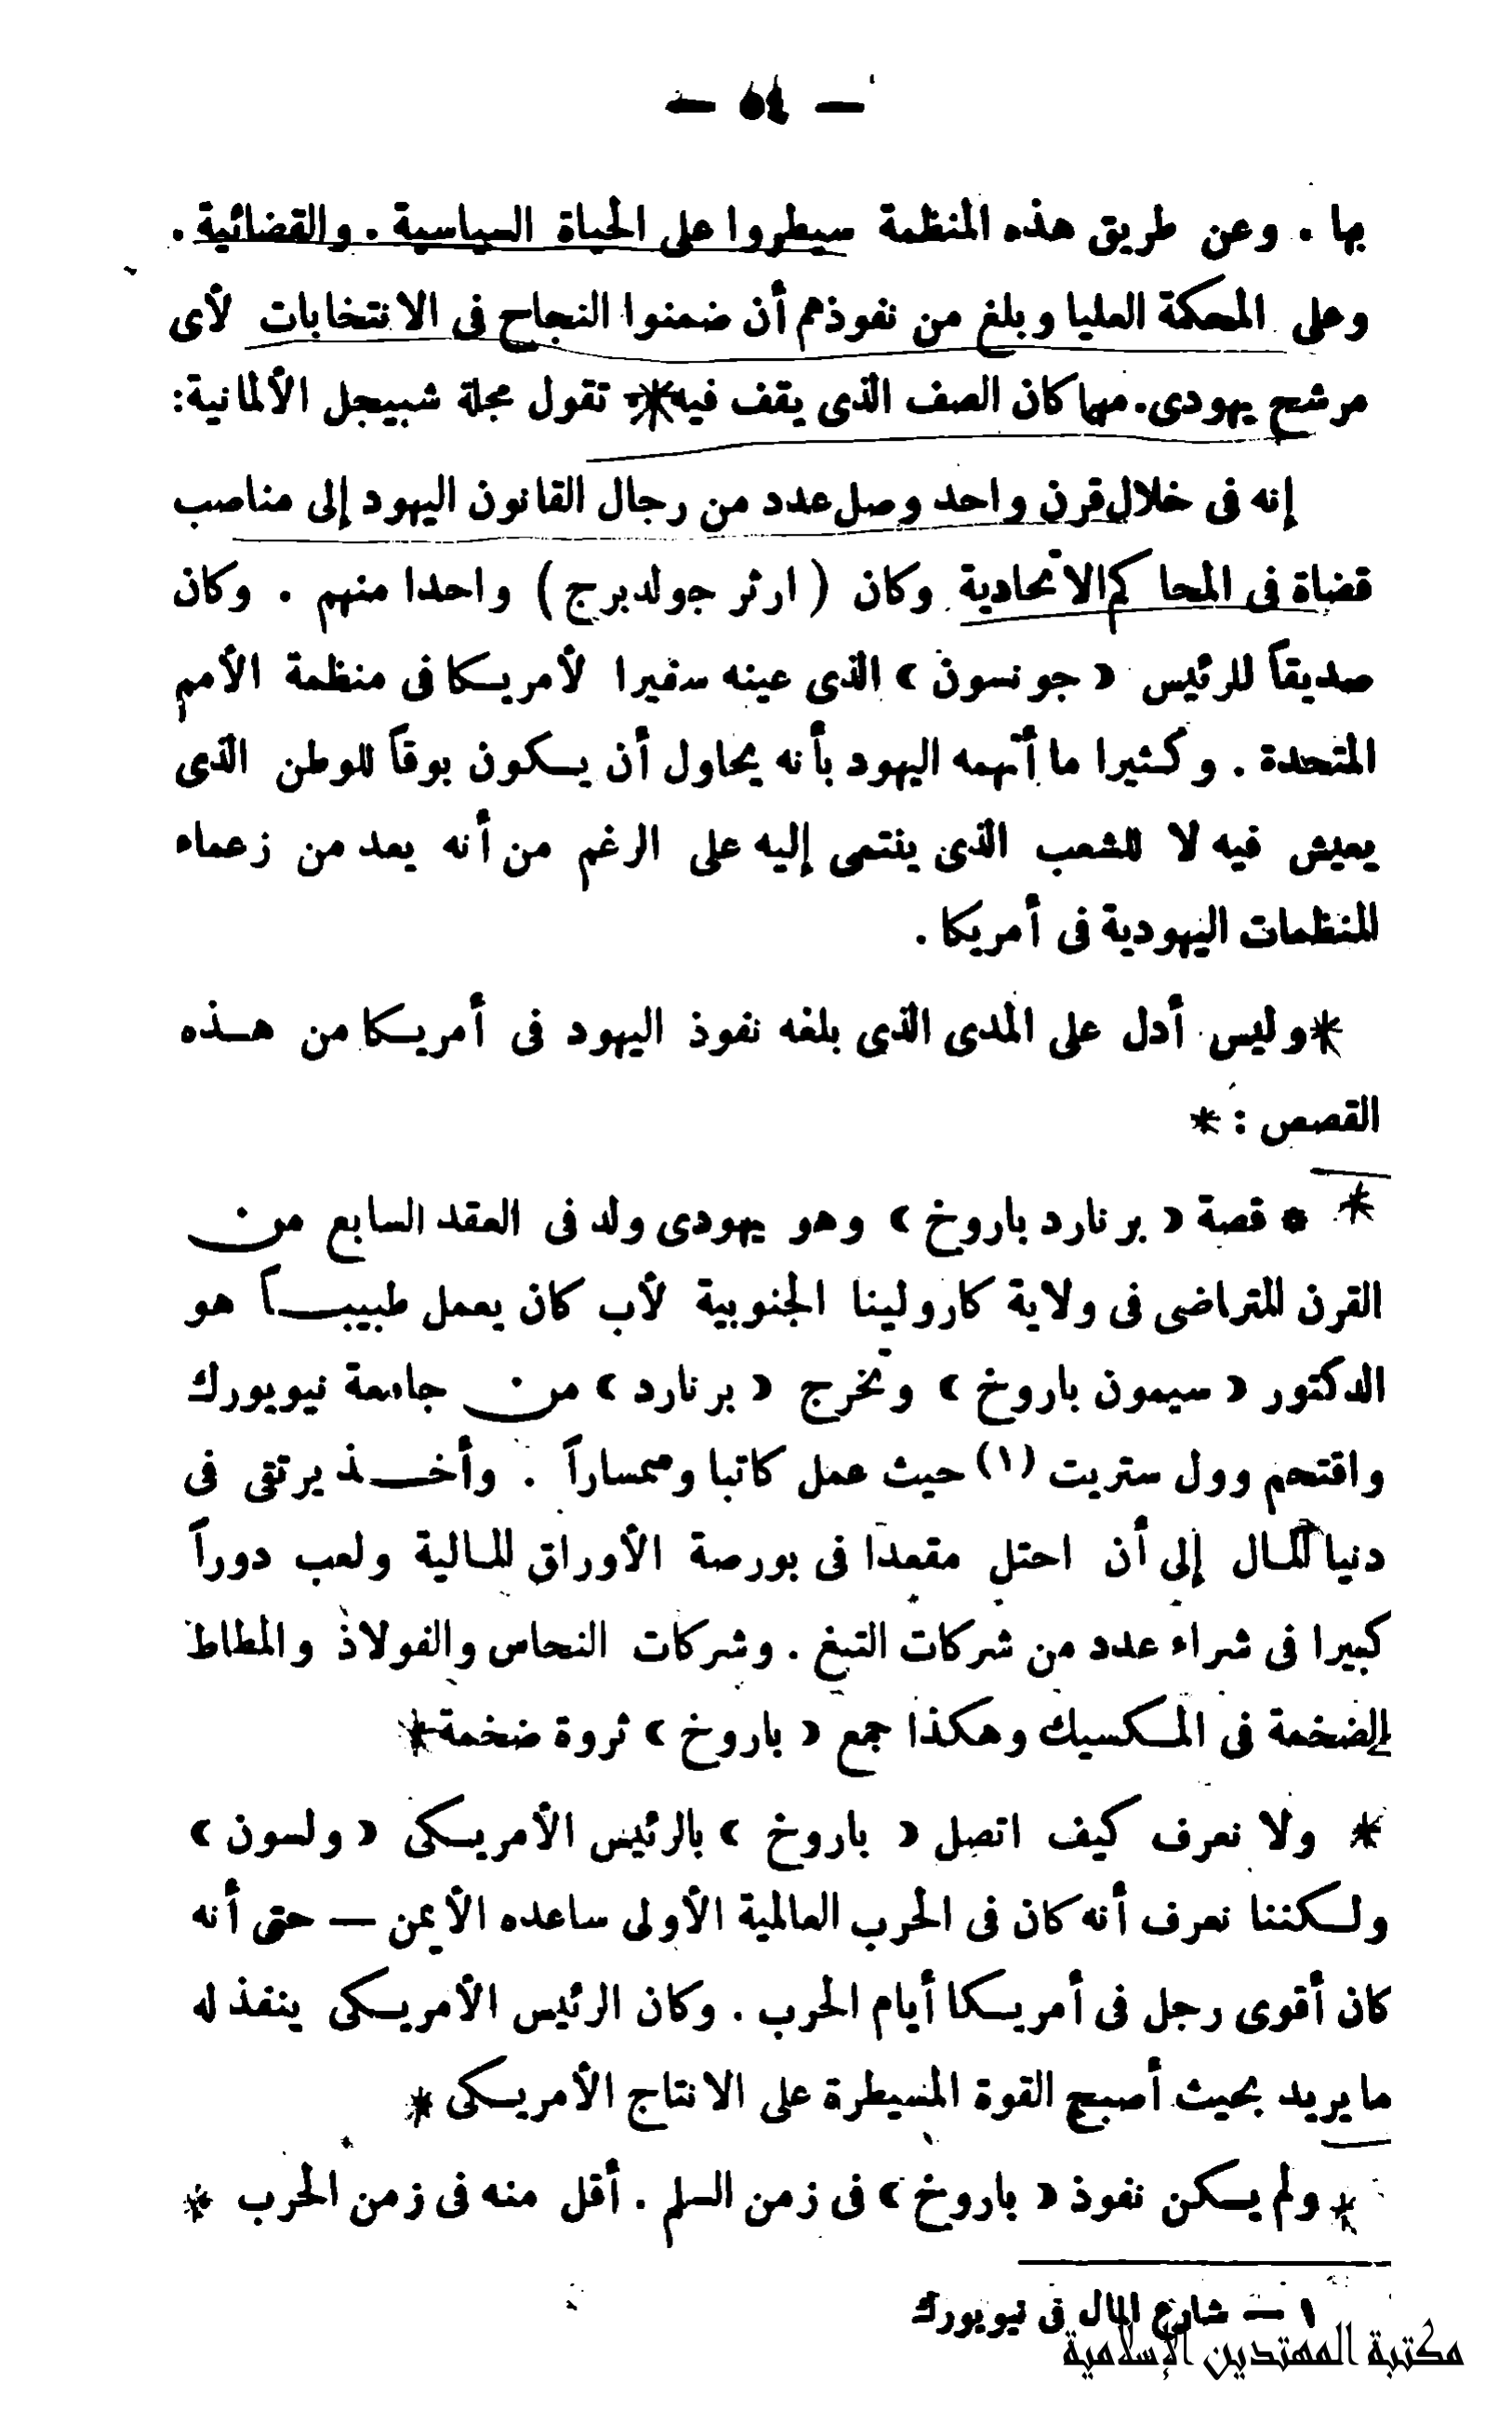 — ٥٤ —
بها . وعن طريق هذه المنظمة سيطروا على الحياة السياسية . والقضائية .
وعلى المحكمة العليا وبلغ من نفوذهم أن ضمنوا النجاح فى الانتخابات لأى
مرشح يهودى . مهما كان الصف الذى يقف فيه * تقول مجلة شبيجل الألمانية :
إنه فى خلال قرن واحد وصل عدد من رجال القانون اليهود إلى مناصب
قضاة فى المحاكم الاتحادية وكان ( ارثر جولدبرج ) واحدا منهم . وكان
صديقاً للرئيس « جونسون » الذى عينه سفيرا لأمريكا فى منظمة الأمم
المتحدة . وكثيرا ما أتهمه اليهود بأنه يحاول أن يكون بوقاً للوطن الذى
يعيش فيه لا للشعب الذى ينتمى إليه على الرغم من أنه يعد من زعماء
المنظمات اليهودية فى أمريكا .
* وليس أدل على المدى الذى بلغه نفوذ اليهود فى أمريكا من هذه
القصص : *
* • قصة « برنارد باروخ » وهو يهودى ولد فى العقد السابع من
القرن المتراضى فى ولاية كارولينا الجنوبية لأب كان يعمل طبيباً هو
الدكتور « سيمون باروخ » وتخرج « برنارد » من جامعة نيويورك
واقتحم وول ستريت (١) حيث عمل كاتبا وسمساراً . وأخذ يرتقى فى
دنيا المال إلى أن احتل مقعدا فى بورصة الأوراق المالية ولعب دوراً
كبيرا فى شراء عدد من شركات التبغ . وشركات النحاس والفولاذ والمطاط
الضخمة فى المكسيك وهكذا جمع « باروخ » ثروة ضخمة *
* ولا نعرف كيف اتصل « باروخ » بالرئيس الأمريكى « ولسون »
ولكننا نعرف أنه كان فى الحرب العالمية الأولى ساعده الأيمن — حتى أنه
كان أقوى رجل فى أمريكا أيام الحرب . وكان الرئيس الأمريكى ينفذ له
ما يريد بحيث أصبح القوة المسيطرة على الانتاج الأمريكى *
* ولم يكن نفوذ « باروخ » فى زمن السلم . أقل منه فى زمن الحرب *
١ — شارع المال فى نيويورك
مكتبة المهتدين الإسلامية